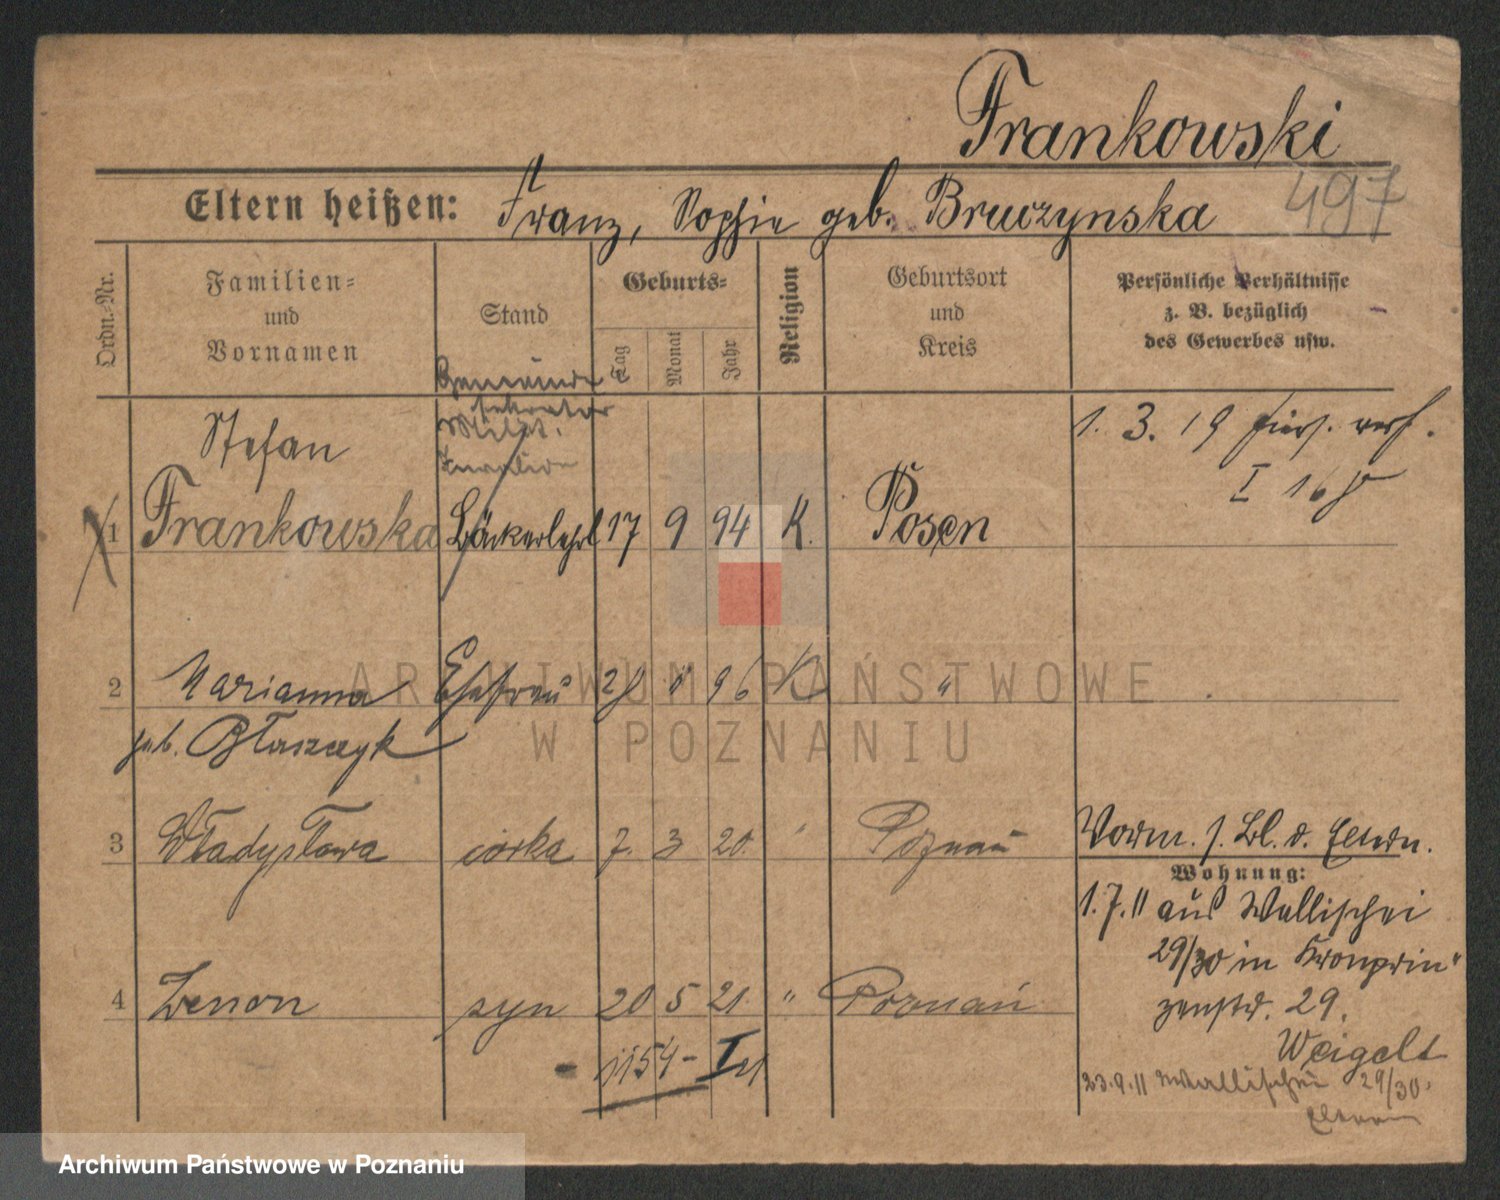 Frankowski
497
Eltern heißen: Franz, Sophie geb. Bruczynska
Ordn.-Nr.
Familien-
und
Vornamen
Stand
Geburts-
Tag
Monat
Jahr
Religion
Geburtsort
und
Kreis
Persönliche Verhältnisse
z. B. bezüglich
des Gewerbes usw.
Stefan
1. 3. 19
I 16
1 Frankowska Bäckerlehrl 17 9 94 K. Posen
2 Marianna Ehefrau 96 K "
geb. Błaszczyk
3 Władysława córka 7. 3 20. Poznań
Vorm. s. Bl. d. Eltern.
Wohnung:
1.7.11 aus Wallischei
29/30 in Kronprin"
zenstr. 29.
4 Zenon syn 20 5 21 " Poznań
Weigelt
1154 -
23.9.11 Wallischei 29/30.
Eltern
ARCHIWUM PAŃSTWOWE
W POZNANIU
Archiwum Państwowe w Poznaniu